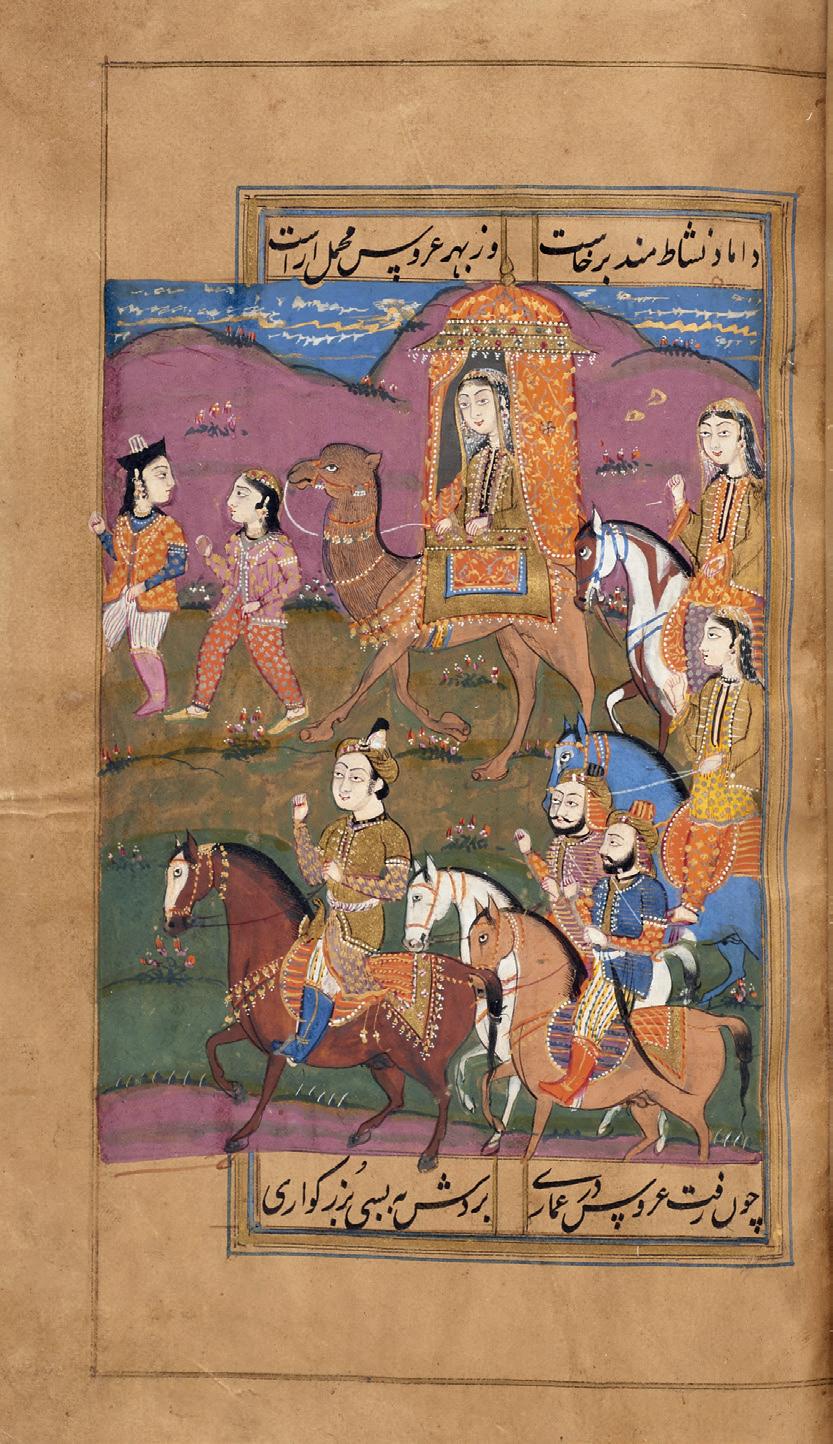 داماد نشاط مند برخاست
وز بهر عروس محمل اراست
چون رفت عروس در عماری
بردش به بسی بزرکواری